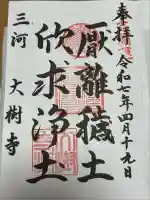 奉拝
令和七年四月十九日
厭離穢土
欣求浄土
三河 大樹寺